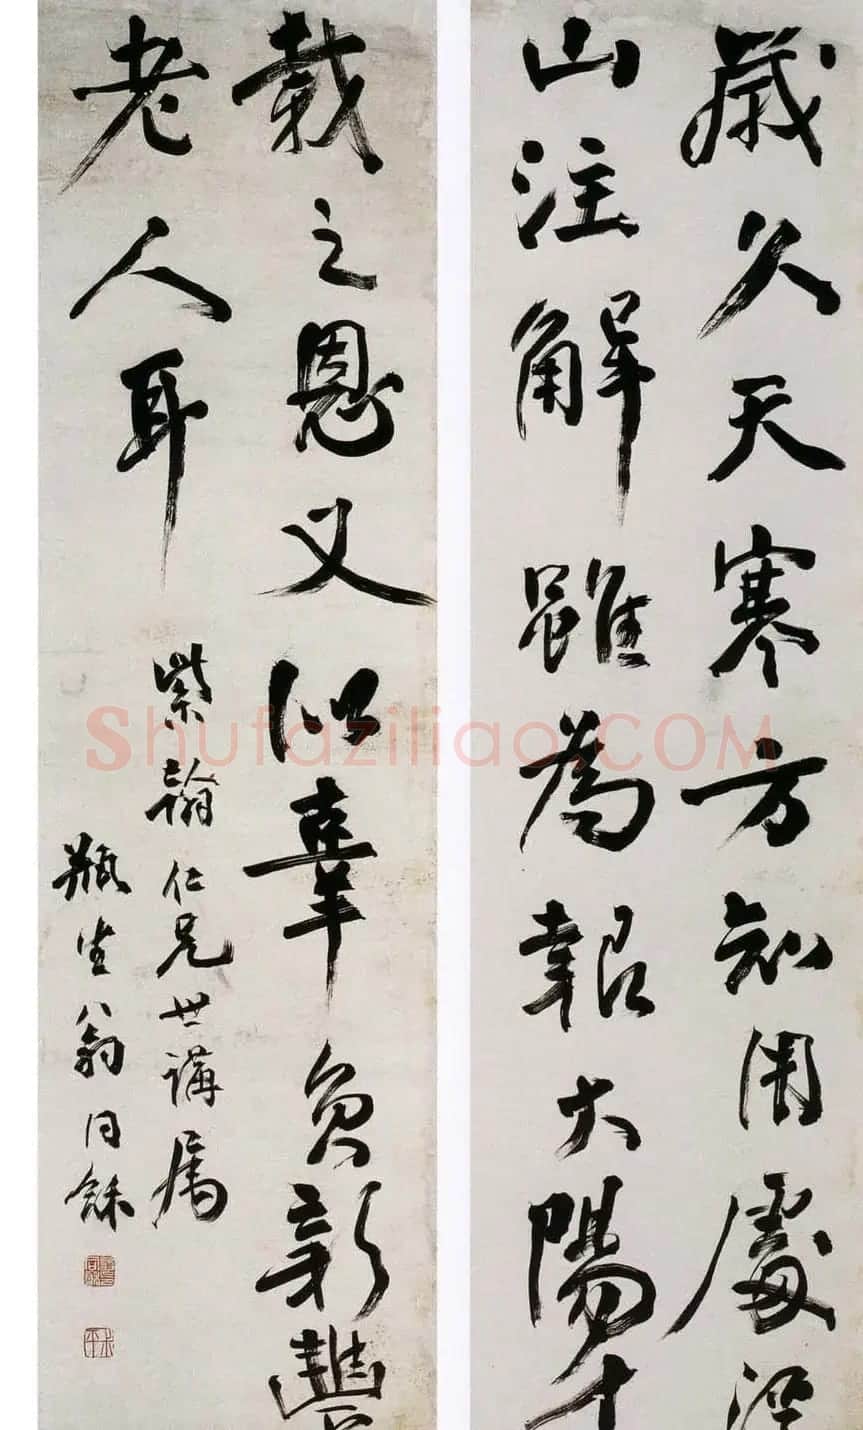 歲久天寒方知用處
山注解雖為報大陽十
載之恩又似辜負新豐
老人耳
紫翰仁兄世講屬
瓶生翁同龢
Shufaziliao.COM